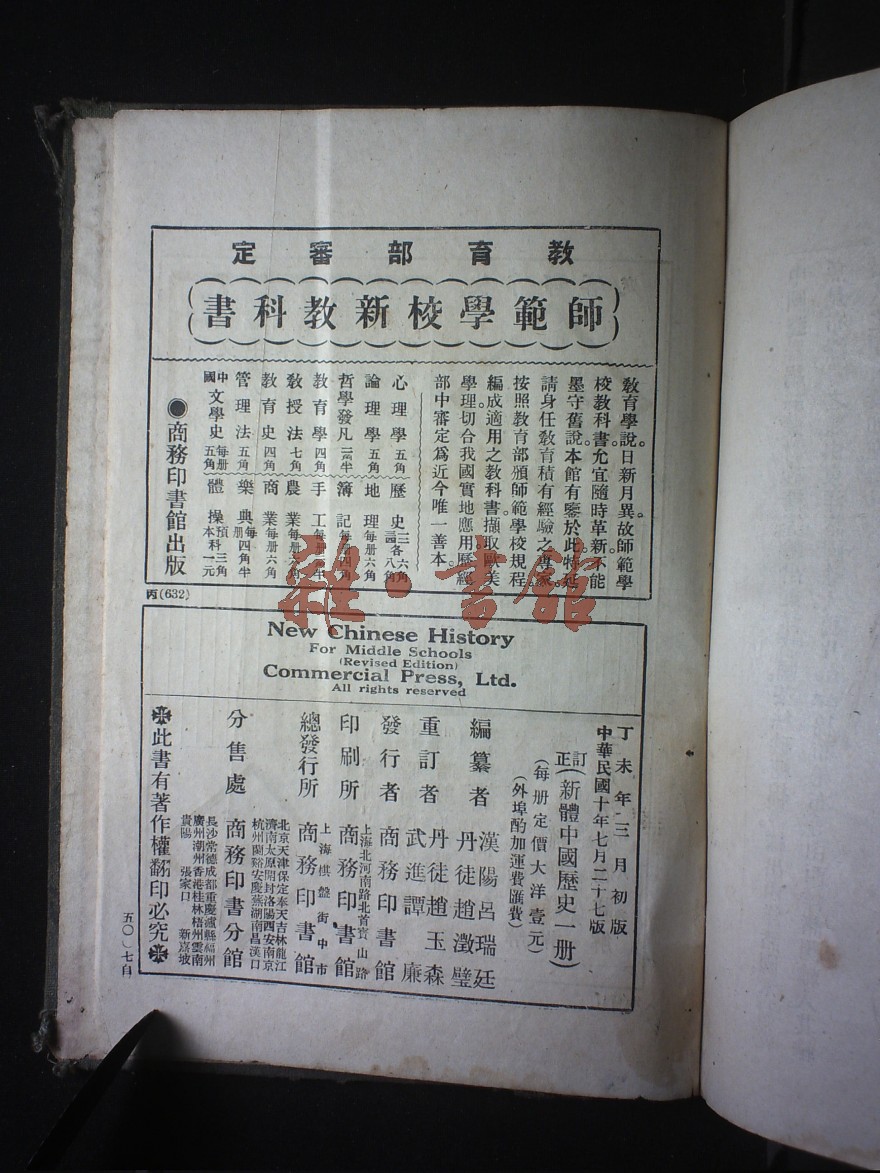 教育部審定
師範學校新教科書
教育學說。日新月異。故師範學
校教科書允宜隨時革新。不能
墨守舊說。本館有鑒於此。特延
請身任教育積有經驗之專家。
按照教育部頒師範學校規程。
編成適用之教科書。擷取歐美
學理。切合我國實地應用。歷經
部中審定爲近今唯一善本。
心理學 五角
論理學 五角
哲學發凡
教育學 四角
教授法 七角
教育史 四角
管理法 五角
中國文學史 每册五角
歷史
地理 每册六角
簿記 每册四角
手工
農業 每册六角
商業 每册六角
樂典 每册四角半
體操 預科三角 本科一元
●商務印書館出版
丙(632)
雜·書館
New Chinese History
For Middle Schools
(Revised Edition)
Commercial Press, Ltd.
All rights reserved
丁未年三月初版
中華民國十年七月二十七版
訂正(新體中國歷史一册)
(每册定價大洋壹元)
(外埠酌加運費匯費)
編纂者 漢陽呂瑞廷 丹徒趙澂璧
重訂者 丹徒趙玉森 武進譚廉
發行者 商務印書館
印刷所 上海北河南路北首寶山路 商務印書館
總發行所 上海棋盤街中市 商務印書館
分售處 商務印書分館
北京天津保定奉天吉林龍江
濟南太原開封洛陽西安南京
杭州蘭谿安慶蕪湖南昌漢口
長沙常德成都重慶瀘縣福州
廣州潮州香港桂林梧州雲南
貴陽 張家口 新嘉坡
此書有著作權翻印必究
五〇七自